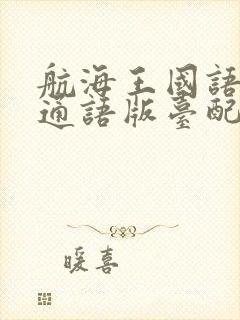 航海王國語
通語版臺配
暖喜